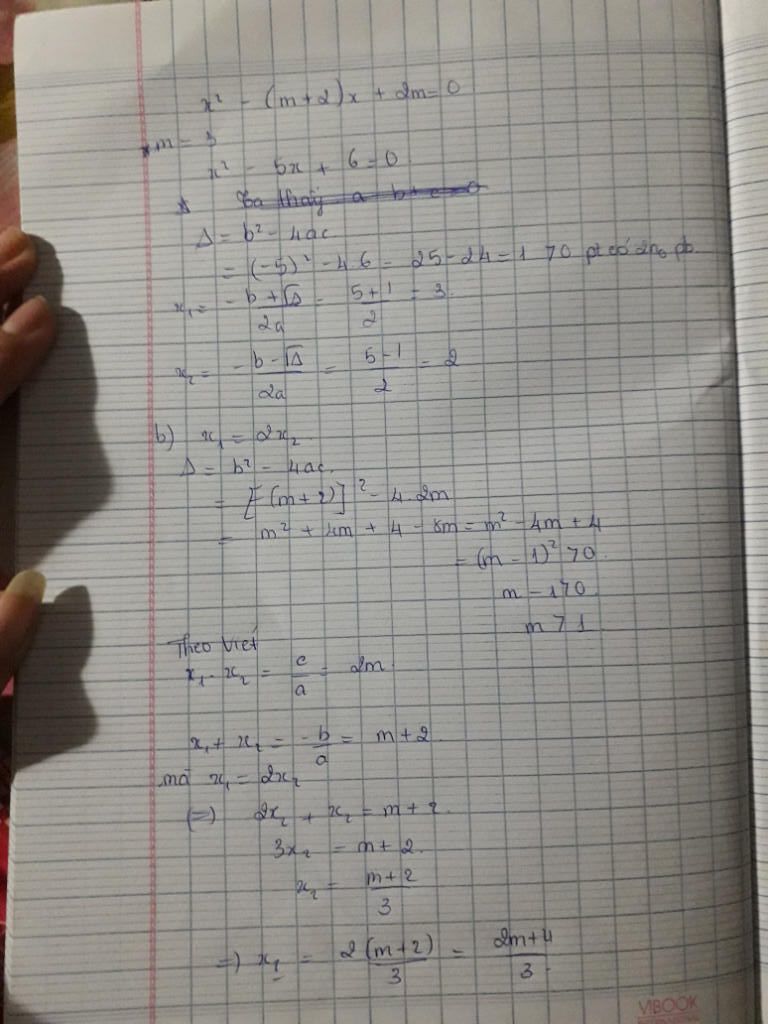 x² - (m+2)x + 2m = 0
* m = 3
x² - 5x + 6 = 0
Δ Ta thấy a - b + c = 0
Δ = b² - 4ac
= (-5)² - 4.6 = 25 - 24 = 1 > 0 pt có 2no pb
x₁ = \frac{-b + √Δ}{2a} = \frac{5+1}{2} = 3
x₂ = \frac{-b - √Δ}{2a} = \frac{5-1}{2} = 2
b) x₁ = 2x₂
Δ = b² - 4ac
= [-(m+2)]² - 4.2m
= m² + 4m + 4 - 8m = m² - 4m + 4
= (m - 1)² > 0
m - 1 > 0
m > 1
Theo Viet
x₁ . x₂ = \frac{c}{a} = 2m
x₁ + x₂ = \frac{-b}{a} = m + 2
mà x₁ = 2x₂
(=) 2x₂ + x₂ = m + 2
3x₂ = m + 2
x₂ = \frac{m+2}{3}
=) x₂ = \frac{2(m+2)}{3} = \frac{2m+4}{3}
VIBOOK